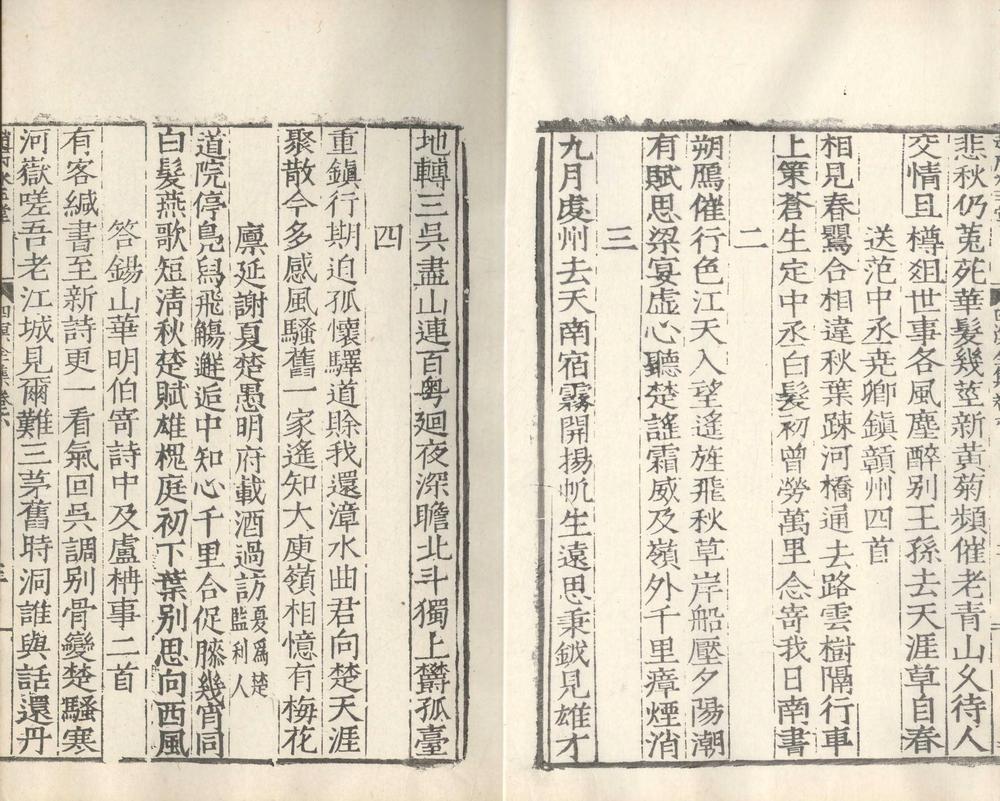 悲秋仍菟苑華髮幾莖新黃菊頻催老青山久待人
交情且樽爼世事各風塵醉别王孫去天涯草自春
送范中丞尭卿鎮贛州四首
相見春鸎合相違秋葉踈河橋通去路雲樹隔行車
上策蒼生定中丞白髮初曾勞萬里念寄我日南書
二
朔鴈催行色江天入望遙旌飛秋草岸船壓夕陽潮
有賦思梁宴虚心聽楚謡霜威及嶺外千里瘴煙消
三
九月虔州去天南宿霧開揚帆生遠思秉鉞見雄才
地轉三吳盡山連百粤廻夜深瞻北斗獨上欝孤臺
四
重鎮行期迫孤懷驛道賒我還漳水曲君向楚天涯
聚散今多感風騷舊一家遙知大庾嶺相憶有梅花
廪延謝夏楚愚明府載酒過訪夏爲楚監利人
道院停鳧舄飛觴邂逅中知心千里合促膝幾宵同
白髮燕歌短清秋楚賦雄槐庭初下葉别思向西風
答錫山華明伯寄詩中及盧柟事二首
有客緘書至新詩更一看氣回吳調别骨變楚騷寒
河嶽嗟吾老江城見爾難三茅舊時洞誰與話還丹
四溟全集卷